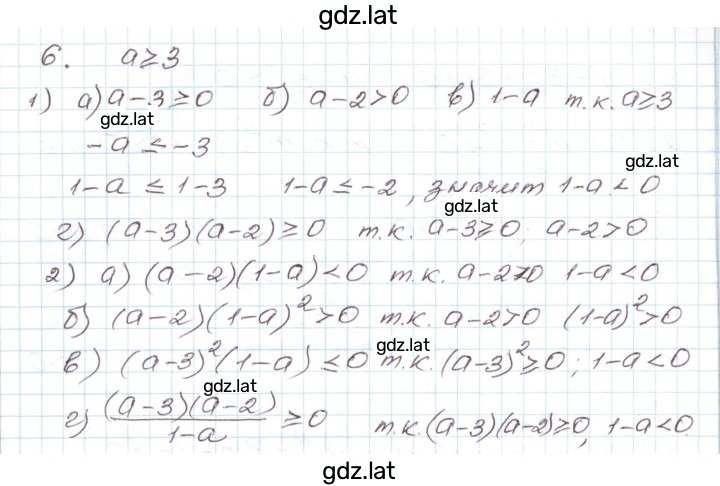 gdz.lat
6. a ≥ 3
1) а) a-3 ≥ 0 б) a-2 > 0 в) 1-a т.к. a ≥ 3
gdz.lat
-a ≤ -3
gdz.lat
1-a ≤ 1-3 1-a ≤ -2, значит 1-a < 0
gdz.lat
г) (a-3)(a-2) ≥ 0 т.к. a-3 ≥ 0; a-2 > 0
2) а) (a-2)(1-a) < 0 т.к. a-2 > 0 1-a < 0
б) (a-2)(1-a)² > 0 т.к. a-2 > 0 (1-a)² > 0
gdz.lat
в) (a-3)²(1-a) ≤ 0 т.к. (a-3)² ≥ 0; 1-a < 0
gdz.lat
г) (a-3)(a-2)/(1-a) ≥ 0 т.к. (a-3)(a-2) ≥ 0, 1-a < 0
gdz.lat